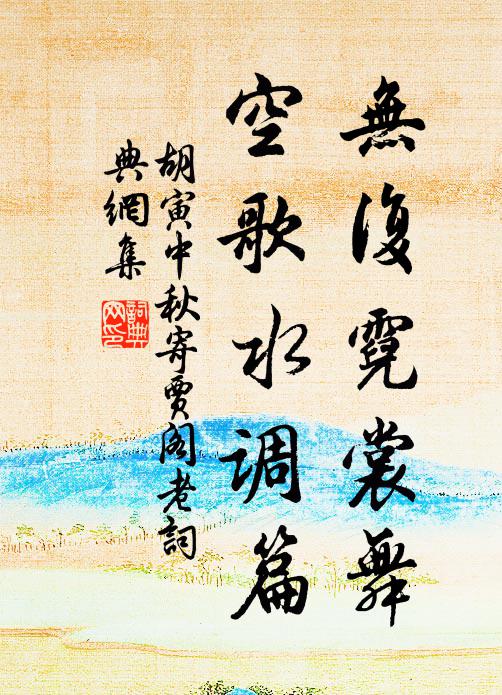 無復霓裳舞
空歌水調篇
胡寅中秋寄賈閣老詞
典網集
詞典
网印